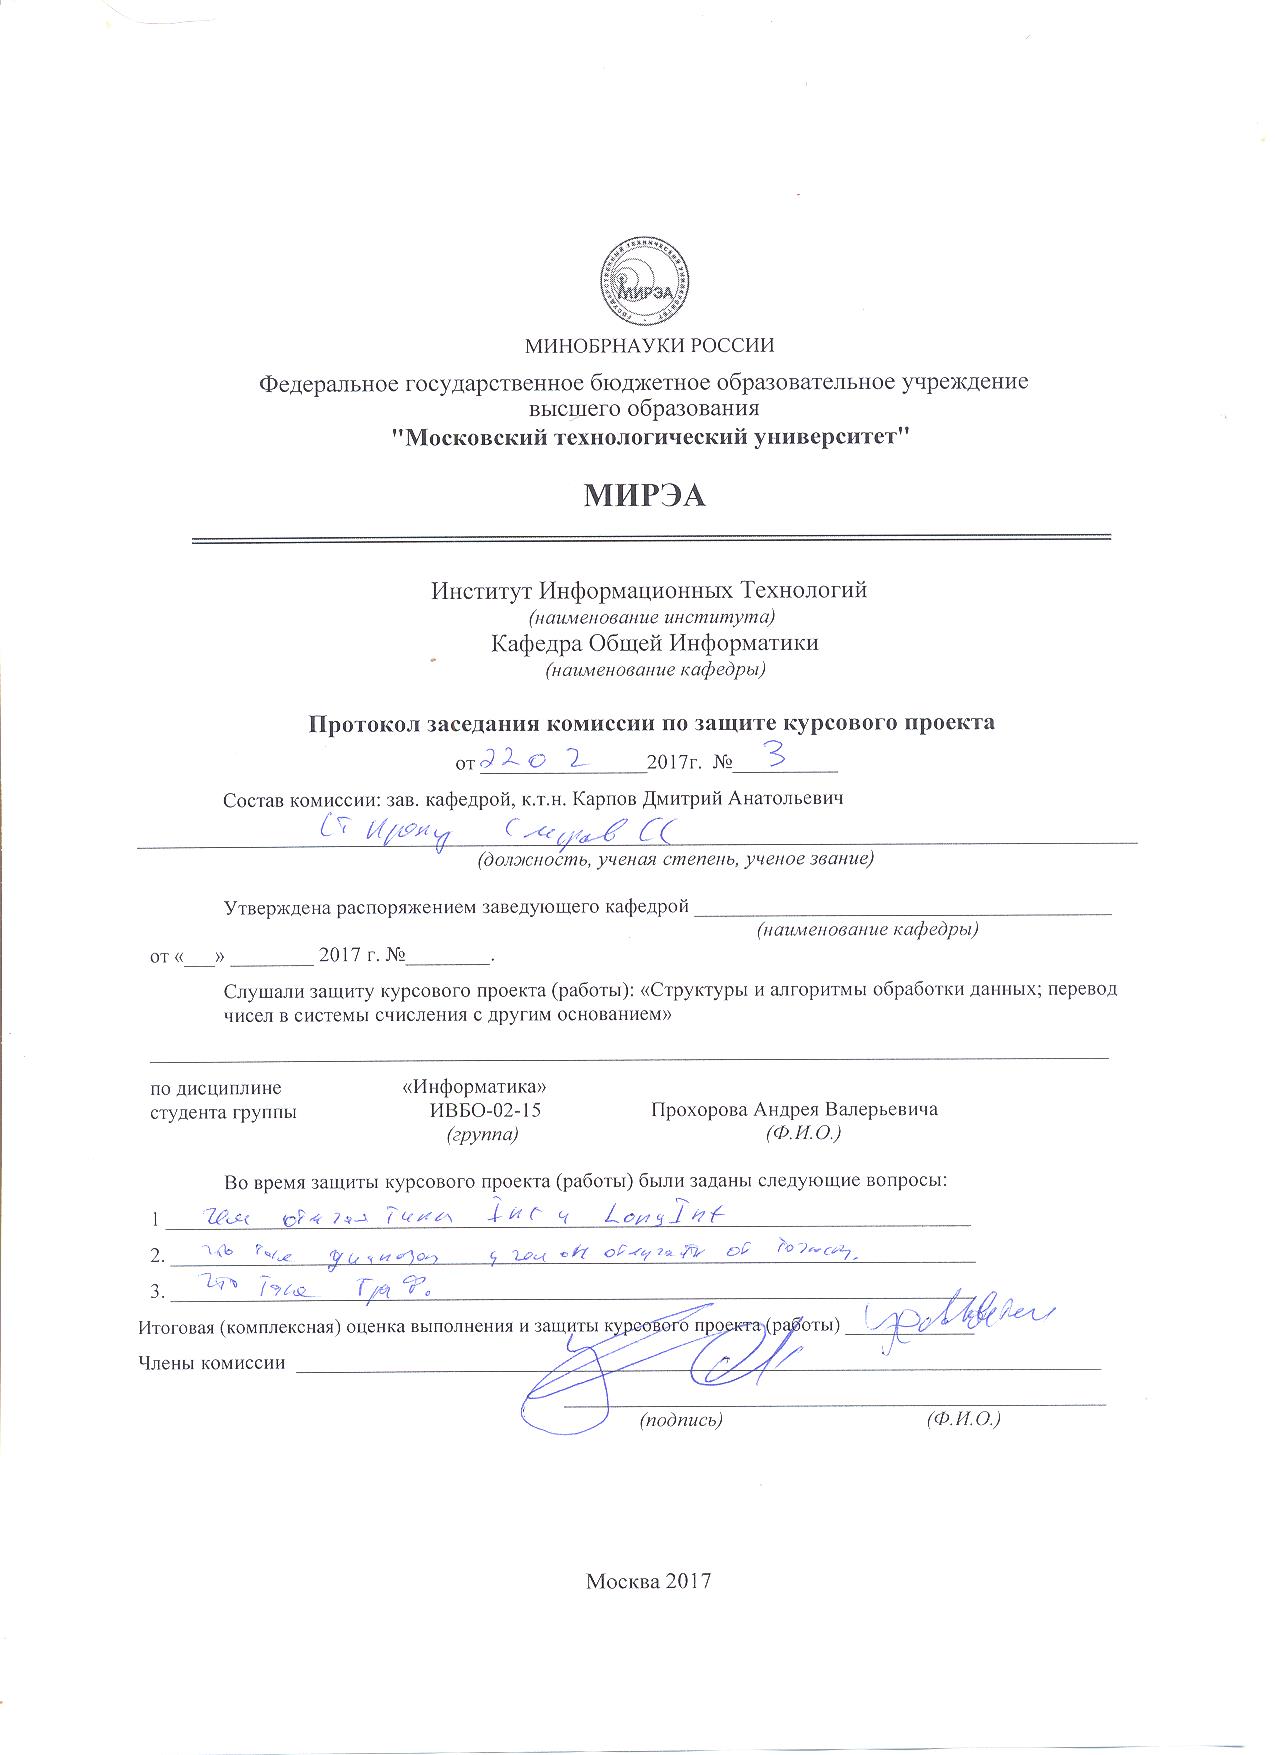 МИРЭА
МИНОБРНАУКИ РОССИИ
Федеральное государственное бюджетное образовательное учреждение
высшего образования
"Московский технологический университет"
МИРЭА
Институт Информационных Технологий
(наименование института)
Кафедра Общей Информатики
(наименование кафедры)
Протокол заседания комиссии по защите курсового проекта
от 22 0 2 2017г. № 3
Состав комиссии: зав. кафедрой, к.т.н. Карпов Дмитрий Анатольевич
Ст Смирнов СС
(должность, ученая степень, ученое звание)
Утверждена распоряжением заведующего кафедрой
(наименование кафедры)
от «___» ________ 2017 г. №________.
Слушали защиту курсового проекта (работы): «Структуры и алгоритмы обработки данных; перевод
чисел в системы счисления с другим основанием»
по дисциплине «Информатика»
студента группы ИВБО-02-15 Прохорова Андрея Валерьевича
(группа) (Ф.И.О.)
Во время защиты курсового проекта (работы) были заданы следующие вопросы:
1 Чем типы Int и LongInt
2. и чем он от
3. Что такое Граф.
Итоговая (комплексная) оценка выполнения и защиты курсового проекта (работы)
Члены комиссии
(подпись) (Ф.И.О.)
Москва 2017